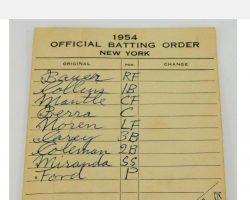 1954
OFFICIAL BATTING ORDER
NEW YORK
ORIGINAL POS. CHANGE
Bauer RF
Collins 1B
Mantle CF
Berra C
Noren LF
Carey 3B
Coleman 2B
Miranda SS
Ford P